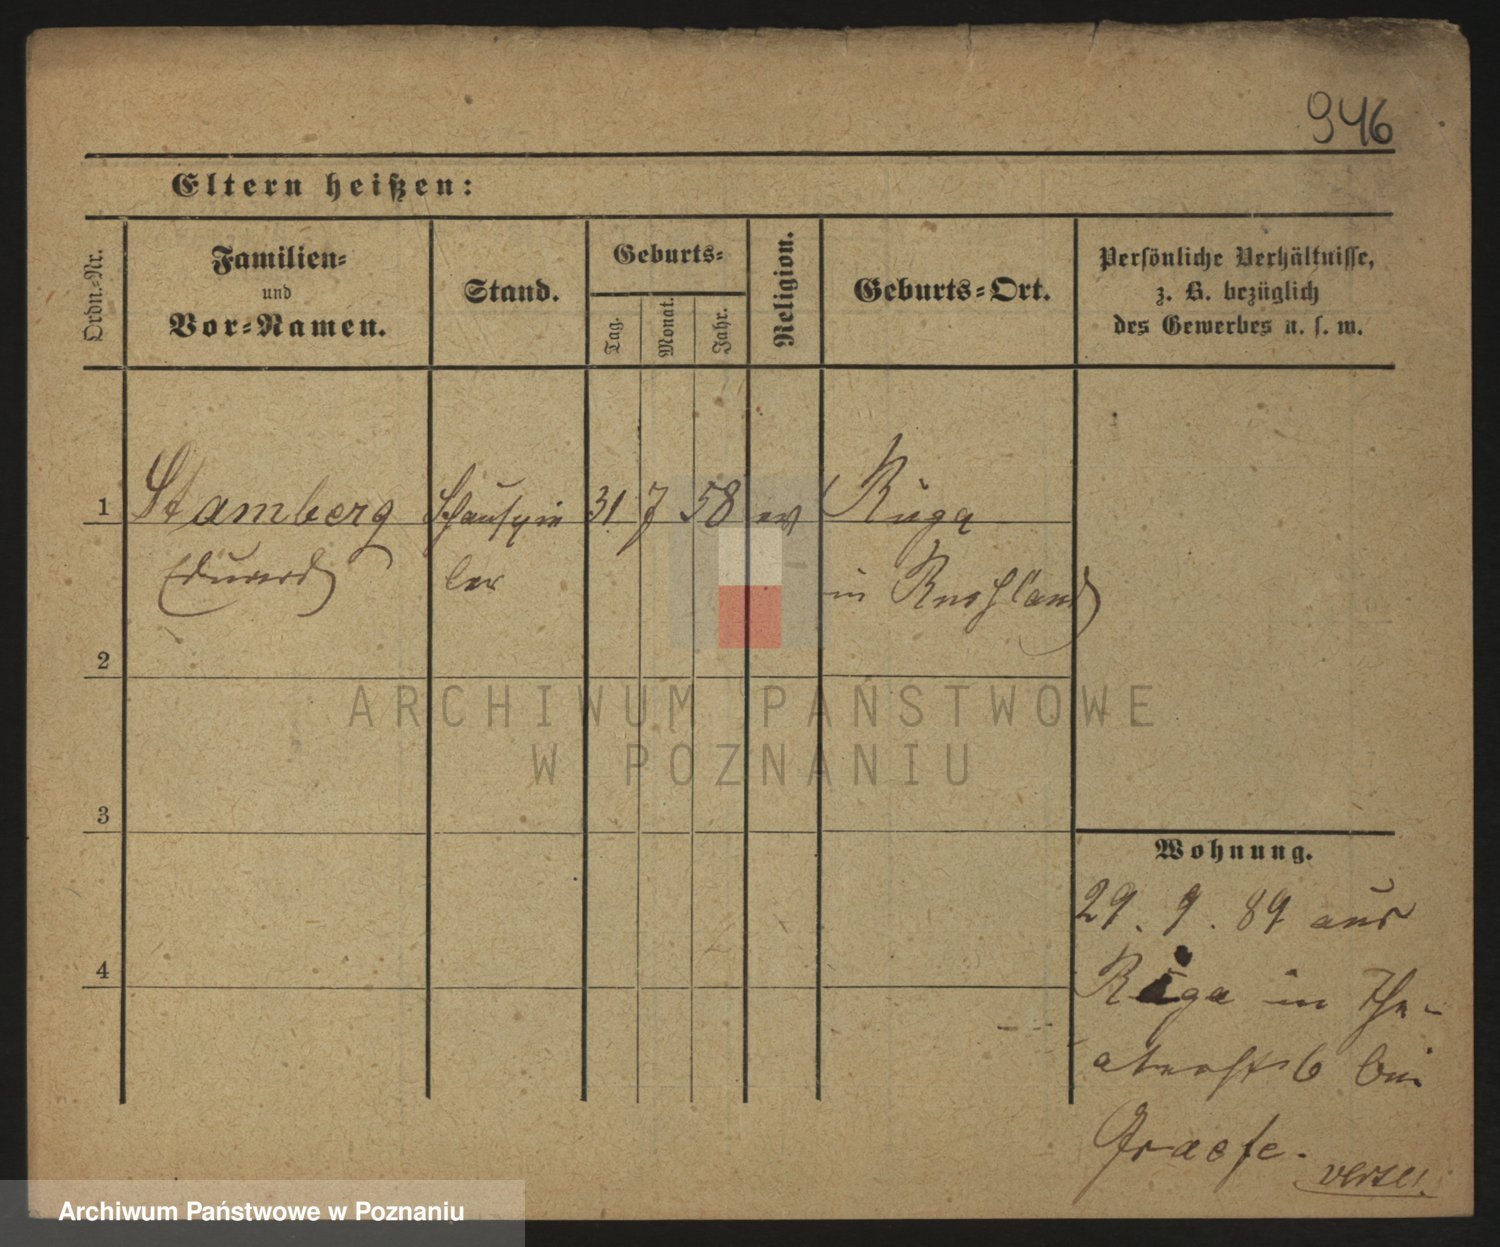 946
Eltern heißen:
Ordn.-Nr.
Familien-
und
Vor-Namen.
Stand.
Geburts-
Tag.
Monat.
Jahr.
Religion.
Geburts-Ort.
Persönliche Verhältnisse,
z. B. bezüglich
des Gewerbes u. s. w.
1 Stamberg Schauspie 31 7 58 ev Riga
Eduard ler in Rußland
2
3
4
Wohnung.
29. 9. 89 aus
Riga in The-
aterstr 6 bei
Graefe.
ARCHIWUM PAŃSTWOWE
W POZNANIU
Archiwum Państwowe w Poznaniu